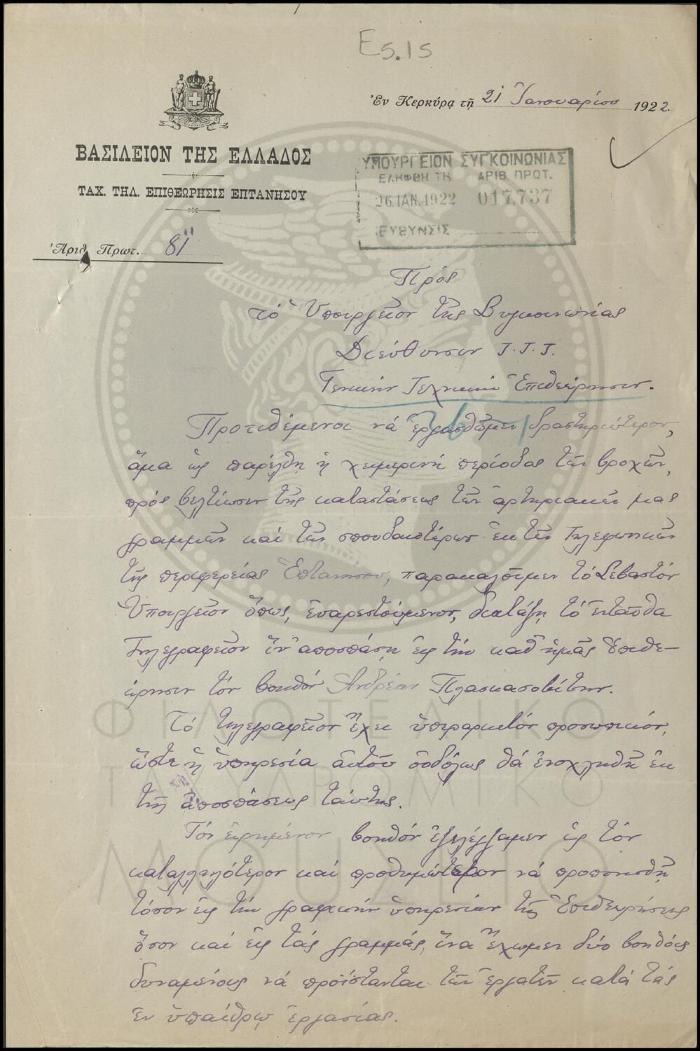 E5.15
Ἐν Κερκύρᾳ τῇ 21 Ἰανουαρίου 1922
ΒΑΣΙΛΕΙΟΝ ΤΗΣ ΕΛΛΑΔΟΣ
ΤΑΧ. ΤΗΛ. ΕΠΙΘΕΩΡΗΣΙΣ ΕΠΤΑΝΗΣΟΥ
Ἀριθ. Πρωτ. 81
ΥΠΟΥΡΓΕΙΟΝ ΣΥΓΚΟΙΝΩΝΙΑΣ
ΕΛΗΦΘΗ ΤΗ ΑΡΙΘ. ΠΡΩΤ.
26 ΙΑΝ. 1922 017,737
ΕΥΘΥΝΣΙΣ
Πρὸς
τὸ Ὑπουργεῖον τῆς Συγκοινωνίας
Διεύθυνσιν Τ.Τ.Τ.
Γενικὴν Τεχνικὴν Ἐπιθεώρησιν.
Προτιθέμενοι νὰ ἐργασθῶμεν δραστηριώτερον,
ἅμα ὡς παρέλθῃ ἡ χειμερινὴ περίοδος τῶν βροχῶν,
πρὸς βελτίωσιν τῆς καταστάσεως τῶν ἀρτηριακῶν μας
γραμμῶν καὶ τῶν σπουδαιοτέρων ἐκ τῶν τηλεφωνικῶν
τῆς περιφερείας Ἑπτανήσου, παρακαλοῦμεν τὸ Σεβαστὸν
Ὑπουργεῖον ὅπως, εὐαρεστούμενον, διατάξῃ τὸ ἐνταῦθα
Τηλεγραφεῖον ἵν' ἀποσπάσῃ εἰς τὴν καθ' ἡμᾶς Ἐπιθε-
ώρησιν τὸν βοηθὸν Ἀνδρέαν Πλασκασοβίτην.
Τὸ τηλεγραφεῖον ἔχει ὑπεραρκετὸν προσωπικόν,
ὥστε ἡ ὑπηρεσία αὐτοῦ οὐδόλως θὰ ἐνοχληθῇ ἐκ
τῆς ἀποσπάσεως ταύτης.
Τὸν εἰρημένον βοηθὸν ἐξελέξαμεν ὡς τὸν
καταλληλότερον καὶ προθυμώτερον νὰ προπονηθῇ
τόσον εἰς τὴν γραφικὴν ὑπηρεσίαν τῆς Ἐπιθεωρήσεως
ὅσον καὶ εἰς τὰς γραμμάς, ἵνα ἔχωμεν δύο βοηθοὺς
δυναμένους νὰ προΐστανται τῶν ἐργατῶν κατὰ τὰς
ἐν ὑπαίθρῳ ἐργασίας.
ΦΙΛΟΤΕΛΙΚΟ
ΤΑΧΥΔΡΟΜΙΚΟ
ΜΟΥΣΕΙΟ